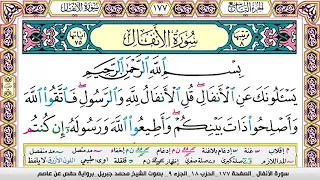 سُورَةُ الأَنفَالِ
١٧٧
سُورَةُ الأَنفَالِ
بِسْمِ اللَّهِ الرَّحْمَٰنِ الرَّحِيمِ
يَسْـَٔلُونَكَ عَنِ ٱلْأَنفَالِ قُلِ ٱلْأَنفَالُ لِلَّهِ وَٱلرَّسُولِ فَٱتَّقُوا۟ ٱللَّهَ
وَأَصْلِحُوا۟ ذَاتَ بَيْنِكُمْ وَأَطِيعُوا۟ ٱللَّهَ وَرَسُولَهُۥٓ إِن كُنتُم
سورة الانفال الصفحة ١٧٧ الحزب ١٨ الجزء ٩ بصوت الشيخ محمد جبريل برواية حفص عن عاصم